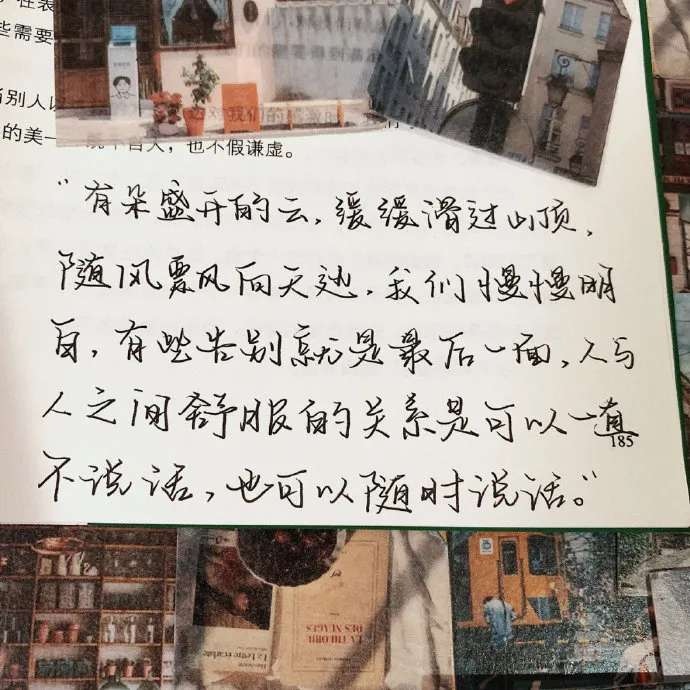 些需要
当别人以
的美一
也不假谦虚。
“有朵盛开的云,缓缓滑过山顶,
随风飘向天边,我们慢慢明
白,有些告别就是最后一面,人与
人之间舒服的关系是可以一直
185
不说话,也可以随时说话。”
LA THÉORIE
DES NUAGES